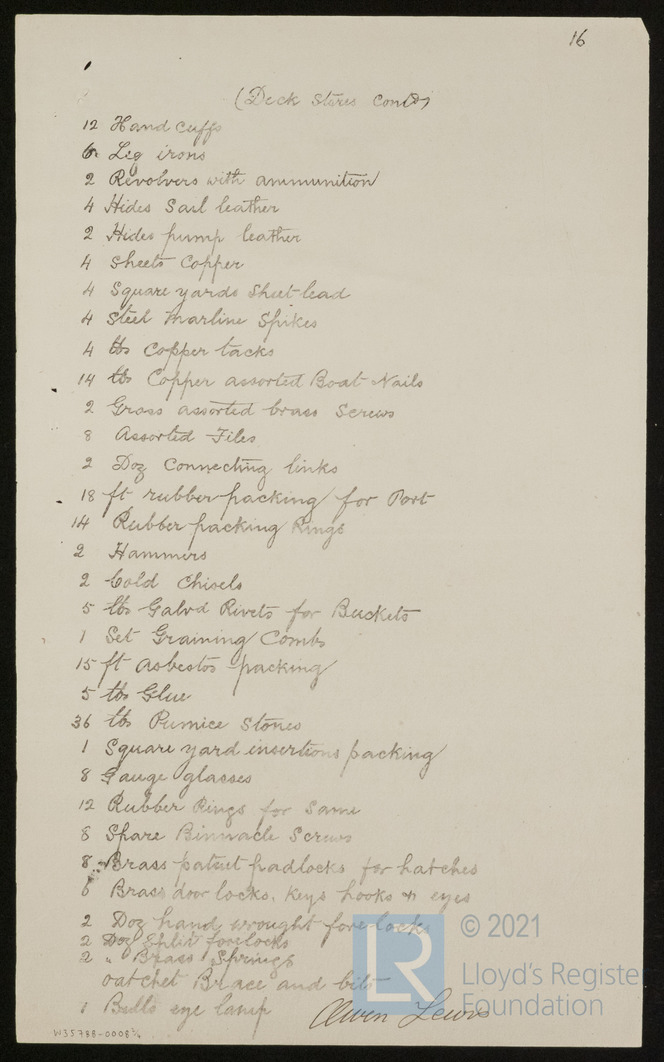 16
(Deck Stores Contd)
12 Hand cuffs
6 Leg irons
2 Revolvers with ammunition
4 Hides Sail leather
2 Hides pump leather
4 Sheets Copper
4 Square yards Sheet lead
4 Steel Marline Spikes
4 lbs Copper tacks
14 lbs Copper assorted Boat Nails
2 Gross assorted brass Screws
8 Assorted Files
2 Doz Connecting links
18 ft rubber packing for Port
14 Rubber packing Rings
2 Hammers
2 Cold Chisels
5 lbs Galvd Rivets for Buckets
1 Set Graining Combs
15 ft asbestos packing
5 lbs Glue
36 lbs Pumice Stones
1 Square yard insertions packing
8 Gauge glasses
12 Rubber Rings for Same
8 Spare Binnacle Screws
8 Brass patent padlocks for hatches
6 Brass door locks, Keys hooks & eyes
2 Doz hand wrought forelocks
2 Doz Split forelocks
2 " Brass Springs
ratchet Brace and bits
1 Bulls eye lamp
Owen Lewis
W35788-0008
LR
© 2021
Lloyd's Register
Foundation